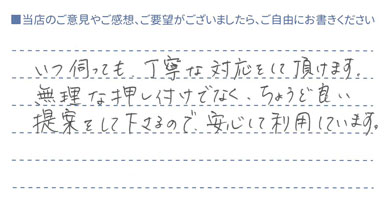 ■当店のご意見やご感想、ご要望がございましたら、ご自由にお書きください
いつ伺っても、丁寧な対応をして頂けます。
無理な押し付けでなく、ちょうど良い
提案をして下さるので、安心して利用しています。